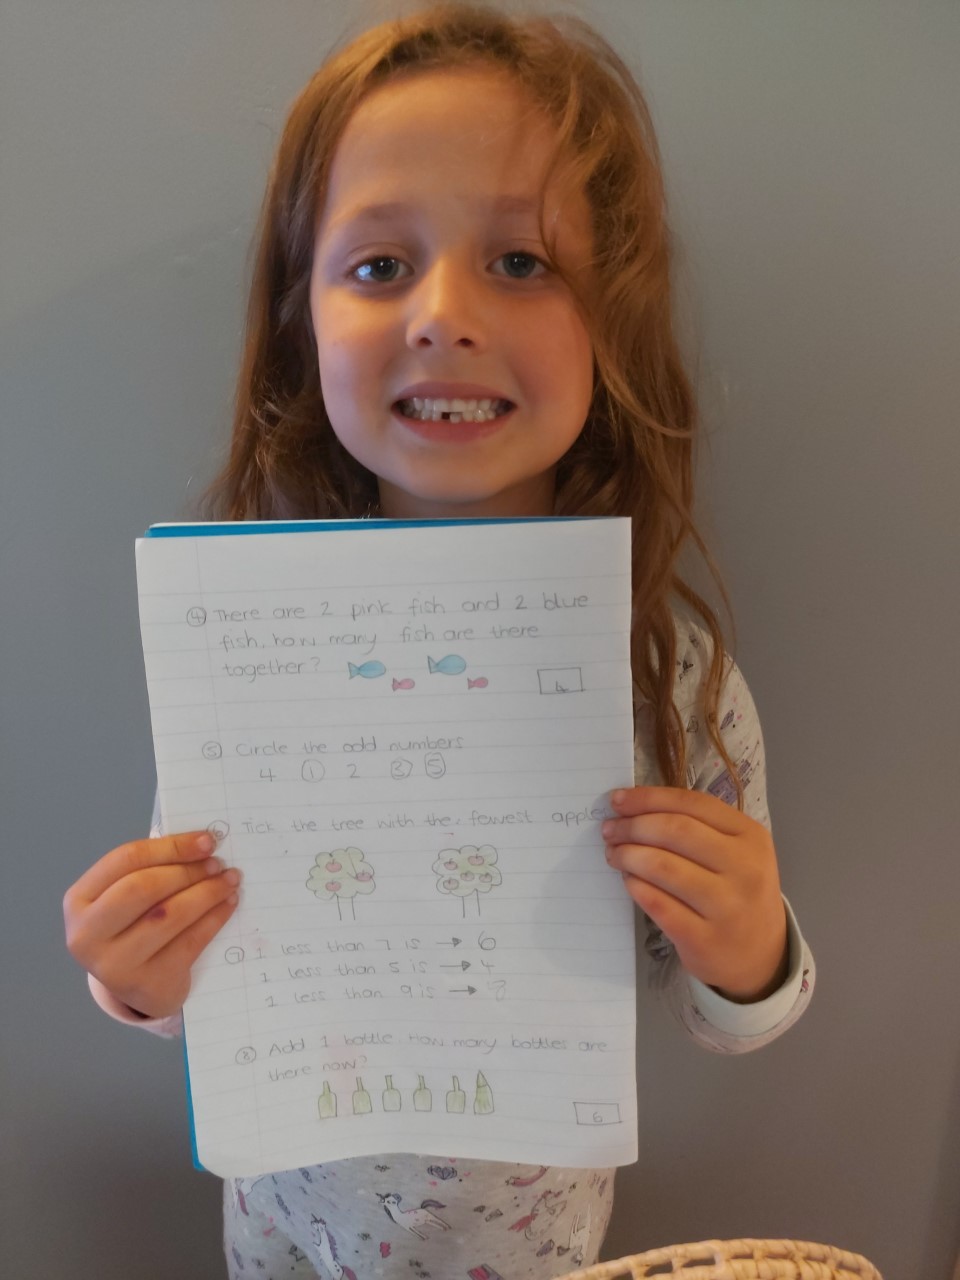 4 There are 2 pink fish and 2 blue
fish. how many fish are there
together?
4
5 Circle the odd numbers
4 1 2 3 5
6 Tick the tree with the fewest apples
7 1 less than 7 is → 6
1 less than 5 is → 4
1 less than 9 is → 8
8 Add 1 bottle. How many bottles are
there now?
6